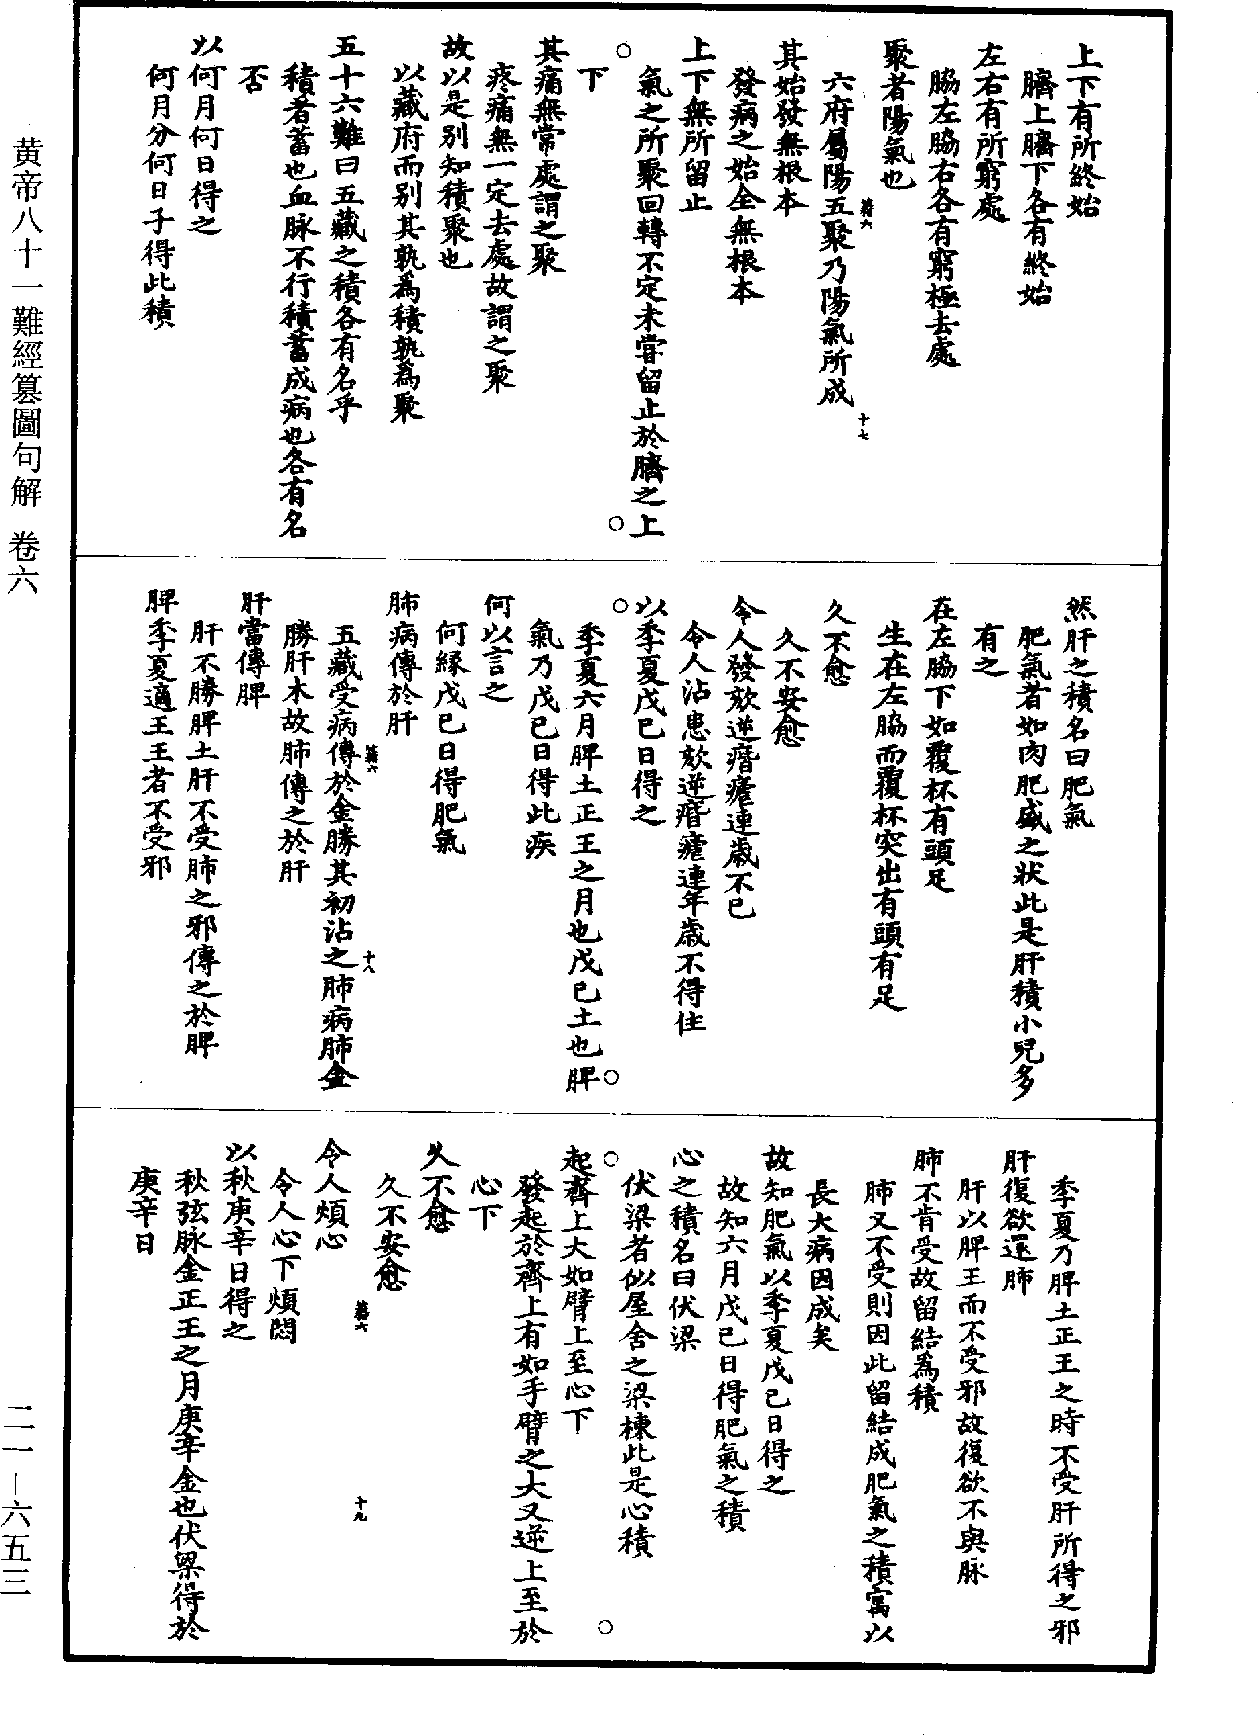 上下有所終始
臍上臍下各有終始
左右有所窮處
脇左脇右各有窮極去處
聚者陽氣也
六府屬陽五聚乃陽氣所成
籍六
十七
其始發無根本
發病之始全無根本
上下無所留止
氣之所聚回轉不定未甞留止於臍之上
下
其痛無常處謂之聚
疼痛無一定去處故謂之聚
故以是别知積聚也
以藏府而别其孰爲積孰爲聚
五十六難曰五藏之積各有名乎
積者蓄也血脉不行積蓄成病也各有名
否
以何月何日得之
何月分何日子得此積
然肝之積名曰肥氣
肥氣者如肉肥盛之狀此是肝積小兒多
有之
在左脇下如覆杯有頭足
生在左脇而覆杯突出有頭有足
久不愈
久不安愈
令人發欬逆㾬瘧連歲不已
令人沾患欬逆㾬瘧連年歲不得住
以季夏戊已日得之
季夏六月脾土正王之月也戊已土也脾
氣乃戊已日得此疾
何以言之
何縁戊已日得肥氣
肺病傳於肝
五藏受病傳於金勝其初沾之肺病肺金
籍六
十八
勝肝木故肺傳之於肝
肝當傳脾
肝不勝脾土肝不受肺之邪傳之於脾
脾季夏適王王者不受邪
季夏乃脾土正王之時不受肝所得之邪
肝復欲還肺
肝以脾王而不受邪故復欲不與脉
肺不肯受故留結爲積
肺又不受則因此留結成肥氣之積寓以
長大病因成矣
故知肥氣以季夏戊已日得之
故知六月戊已日得肥氣之積
心之積名曰伏梁
伏梁者似屋舍之梁棟此是心積
起齊上大如臂上至心下
發起於齊上有如手臂之大又逆上至於
心下
久不愈
久不安愈
籍六
十九
令人煩心
令人心下煩悶
以秋庚辛日得之
秋弦脉金正王之月庚辛金也伏梁得於
庚辛日
黄帝八十一難經篡圖句解 卷六
二一—六五三